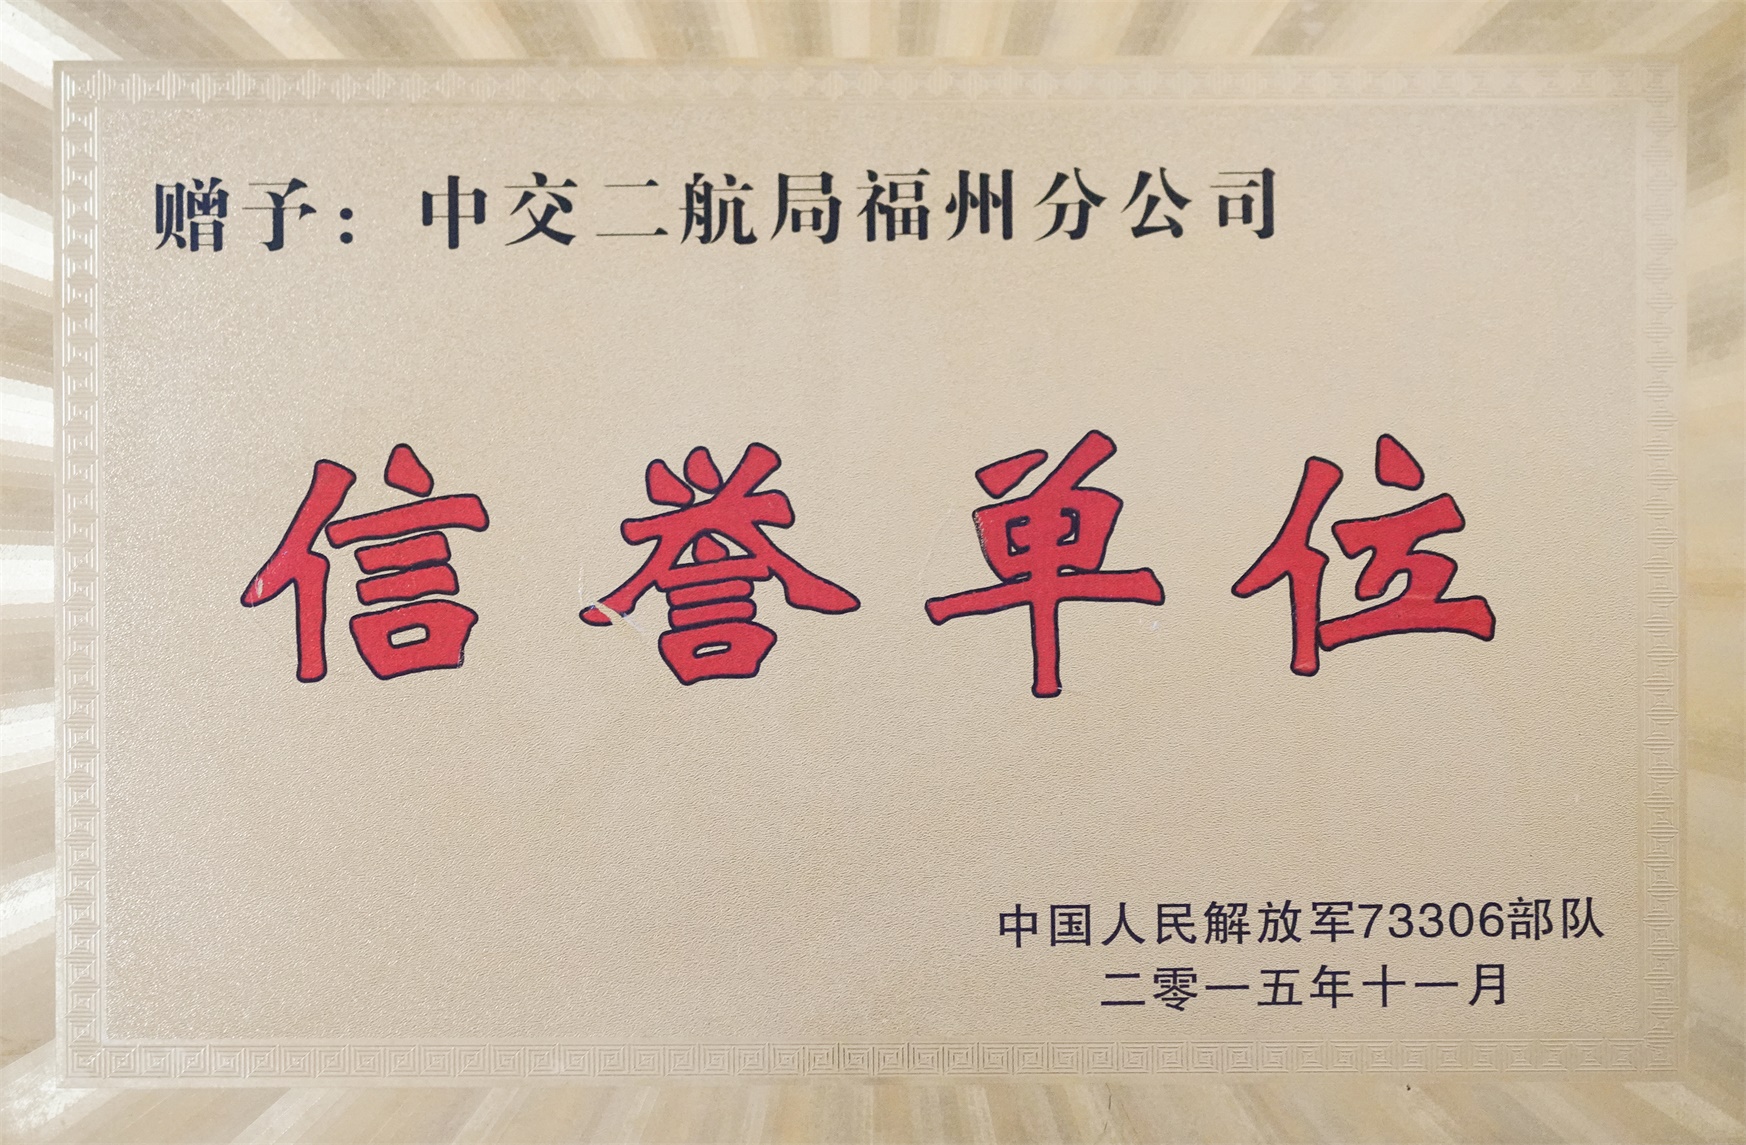 赠予：中交二航局福州分公司
信誉单位
中国人民解放军73306部队
二零一五年十一月